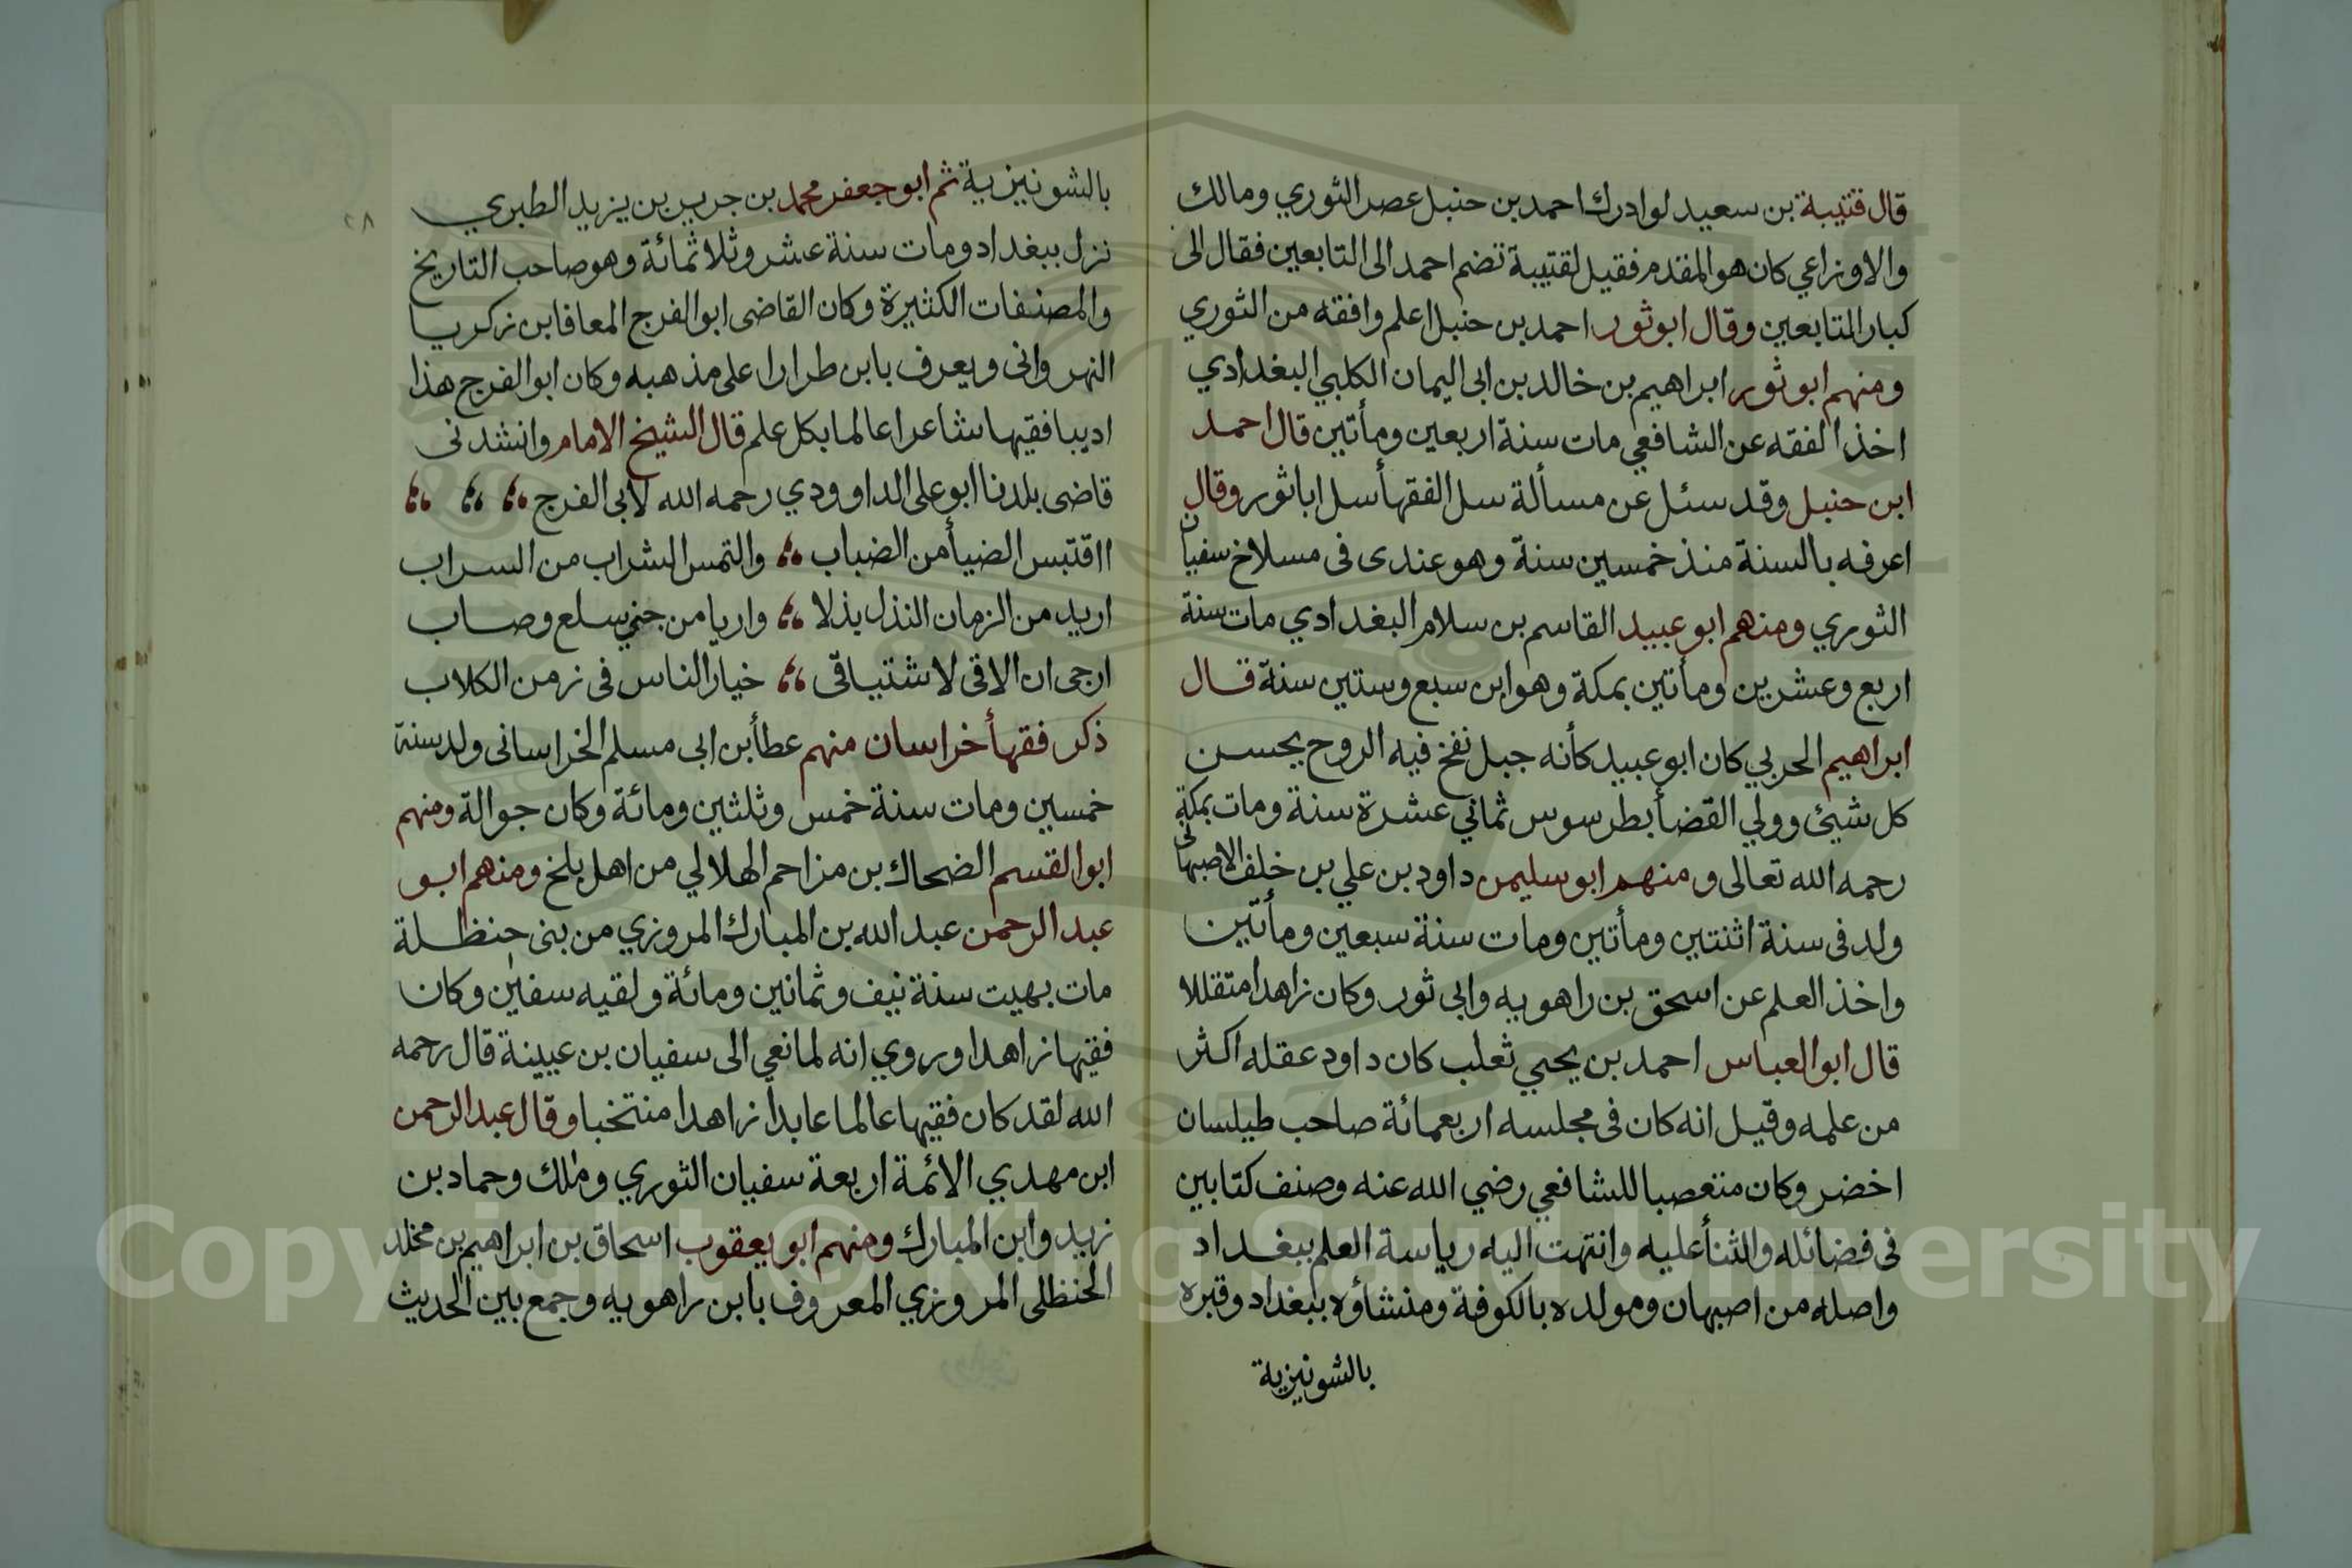 قال قتيبة بن سعيد لوادرك احمد بن حنبل عصر الثوري ومالك
والاوزاعي كان هو المقدم فقيل لقتيبة تضم احمد الى التابعين فقال الى
كبار المتابعين وقال ابو ثور احمد بن حنبل اعلم وافقه من الثوري
ومنهم ابو ثور ابراهيم بن خالد بن ابى اليمان الكلبي البغدادي
اخذ الفقه عن الشافعي مات سنة اربعين ومأتين قال احمد
ابن حنبل وقد سئل عن مسألة سل الفقهأ سل اباثور وقال
اعرفه بالسنة منذ خمسين سنة وهو عندى فى مسلاخ سفيان
الثوري ومنهم ابو عبيد القاسم بن سلام البغدادي مات سنة
اربع وعشرين ومأتين بمكة وهو ابن سبع وستين سنة قال
ابراهيم الحربي كان ابو عبيد كأنه جبل نفخ فيه الروح يحسن
كل شيئ وولي القضأ بطرسوس ثماني عشرة سنة ومات بمكة
رحمه الله تعالى ومنهم ابو سليمن داود بن علي بن خلف الاصبهانى
ولد فى سنة اثنتين ومأتين ومات سنة سبعين ومأتين
واخذ العلم عن اسحق بن راهويه وابى ثور وكان زاهدا متقللا
قال ابو العباس احمد بن يحيي ثعلب كان داود عقله اكثر
من علمه وقيل انه كان فى مجلسه اربعمائة صاحب طيلسان
اخضر وكان متعصبا للشافعي رضي الله عنه وصنف كتابين
فى فضائله والثنأ عليه وانتهت اليه رياسة العلم ببغداد
واصله من اصبهان ومولده بالكوفة ومنشاؤه ببغداد وقبره
بالشونيزية
٢٨
بالشونيزية ثم ابو جعفر محمد بن جرير بن يزيد الطبري
نزل ببغداد ومات سنة عشر وثلاثمائة وهو صاحب التاريخ
والمصنفات الكثيرة وكان القاضى ابو الفرج المعافا بن زكريا
النهروانى ويعرف بابن طرارا على مذهبه وكان ابو الفرج هذا
اديبا فقيها شاعرا عالما بكل علم قال الشيخ الامام وانشدنى
قاضى بلدنا ابو على الداوودي رحمه الله لابى الفرج
ااقتبس الضيأ من الضباب والتمس الشراب من السراب
اريد من الزمان النذل بذلا واريا من جني سلع وصاب
ارجى ان الاقى لاشتياقى خيار الناس فى زمن الكلاب
ذكر فقهأ خراسان منهم عطأ بن ابى مسلم الخراسانى ولد سنة
خمسين ومات سنة خمس وثلثين ومائة وكان جوالة ومنهم
ابو القسم الضحاك بن مزاحم الهلالي من اهل بلخ ومنهم ابو
عبد الرحمن عبد الله بن المبارك المروزي من بنى حنظلة
مات بهيت سنة نيف وثمانين ومائة ولقيه سفين وكان
فقيها زاهدا وروي انه لما نعي الى سفيان بن عيينة قال رحمه
الله لقد كان فقيها عالما عابدا زاهدا منتخبا وقال عبد الرحمن
ابن مهدي الائمة اربعة سفيان الثوري وملك وحماد بن
زيد وابن المبارك ومنهم ابو يعقوب اسحاق بن ابراهيم بن مخلد
الحنظلى المروزي المعروف بابن راهويه وجمع بين الحديث
Copyright © King Saud University